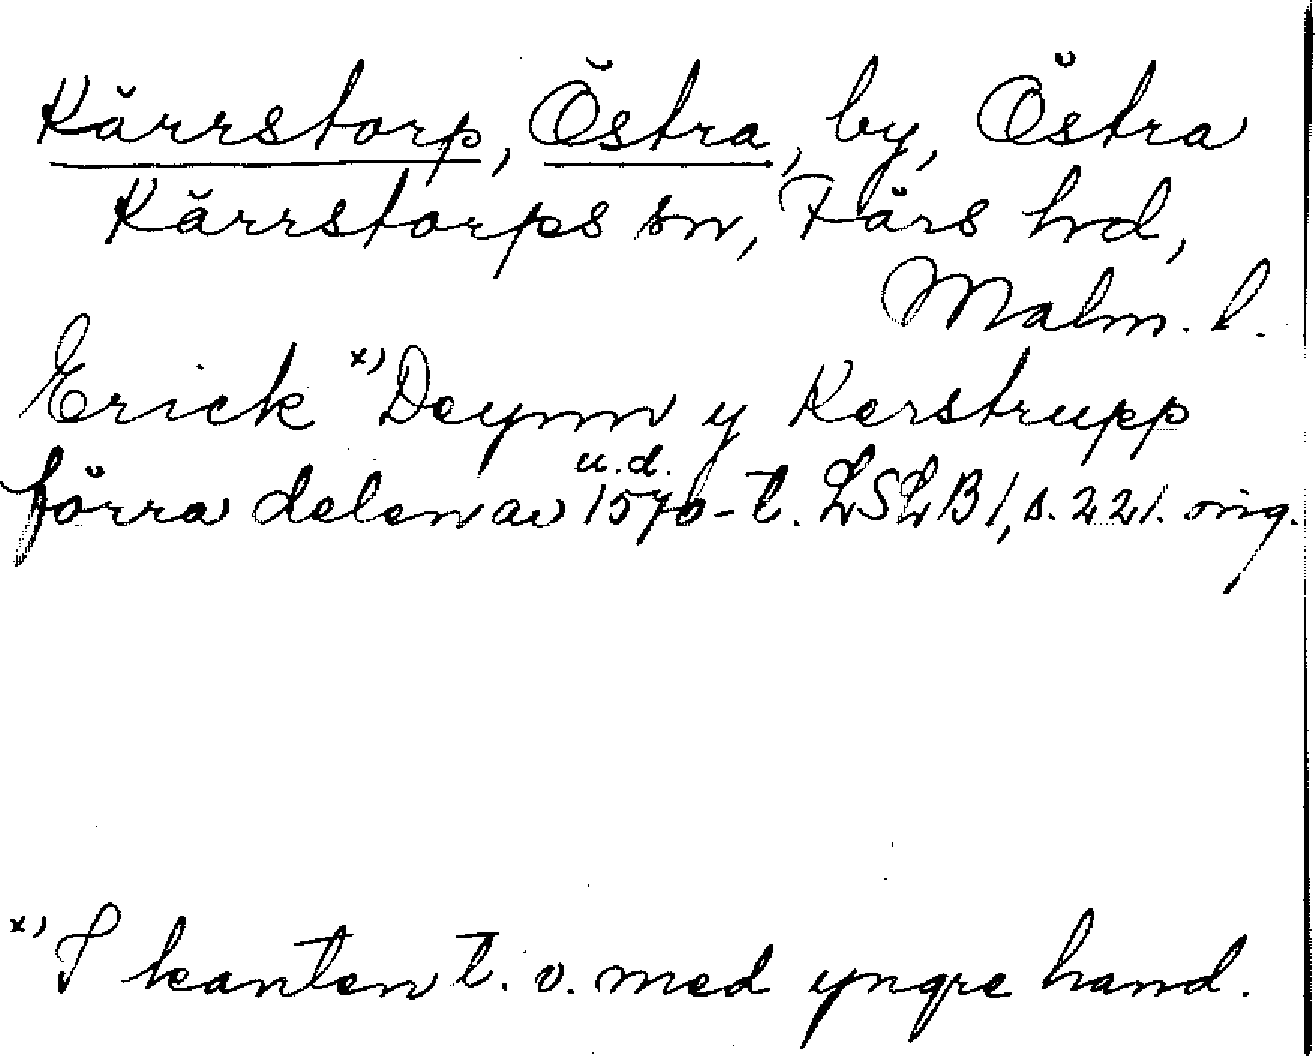 Kärrstorp, Östra, by, Östra
Kärrstorps sn, Färs hd,
Malm. l.
Erick x) Deynn y Kerstrupp
u.d.
förra delen av 1570-t. LSLB1, s. 221. orig.
x) I kanten t.v. med yngre hand.